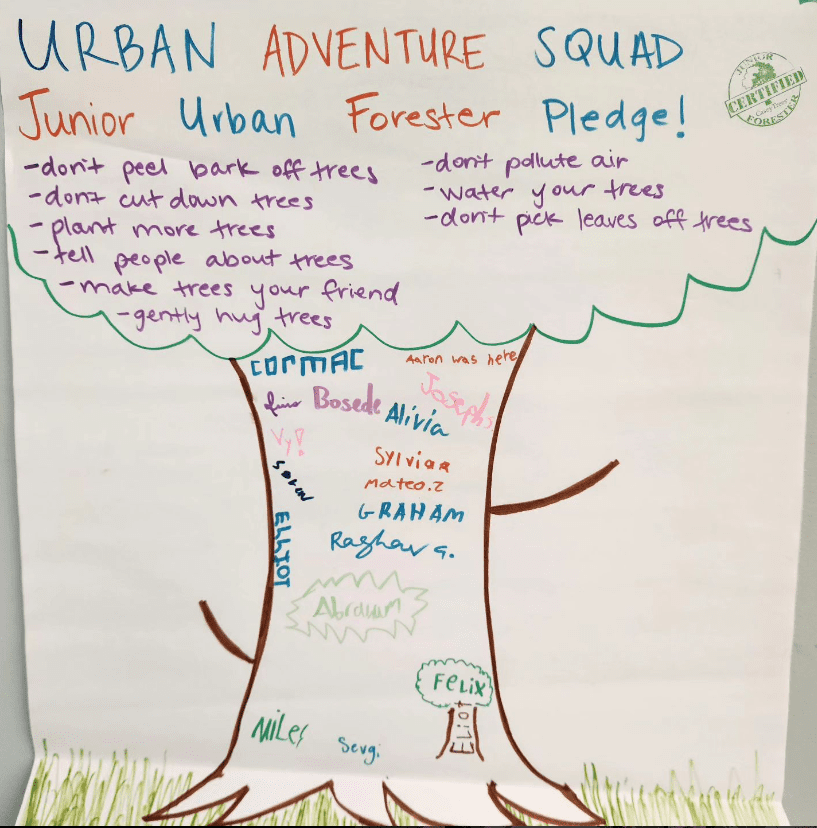 URBAN ADVENTURE SQUAD
Junior Urban Forester Pledge!
JUNIOR
CERTIFIED
Casey Trees
FORESTER
-don't peel bark off trees
-don't cut down trees
-plant more trees
-tell people about trees
-make trees your friend
-gently hug trees
-don't pollute air
-water your trees
-don't pick leaves off trees
CORMAC
Aaron was here
Bosede
Josephs
Alivia
Vy!
Sylvia
Mateo.Z
GRAHAM
ELLIOT
Raghav G.
FELIX
ELiot
MILES
Sevgi